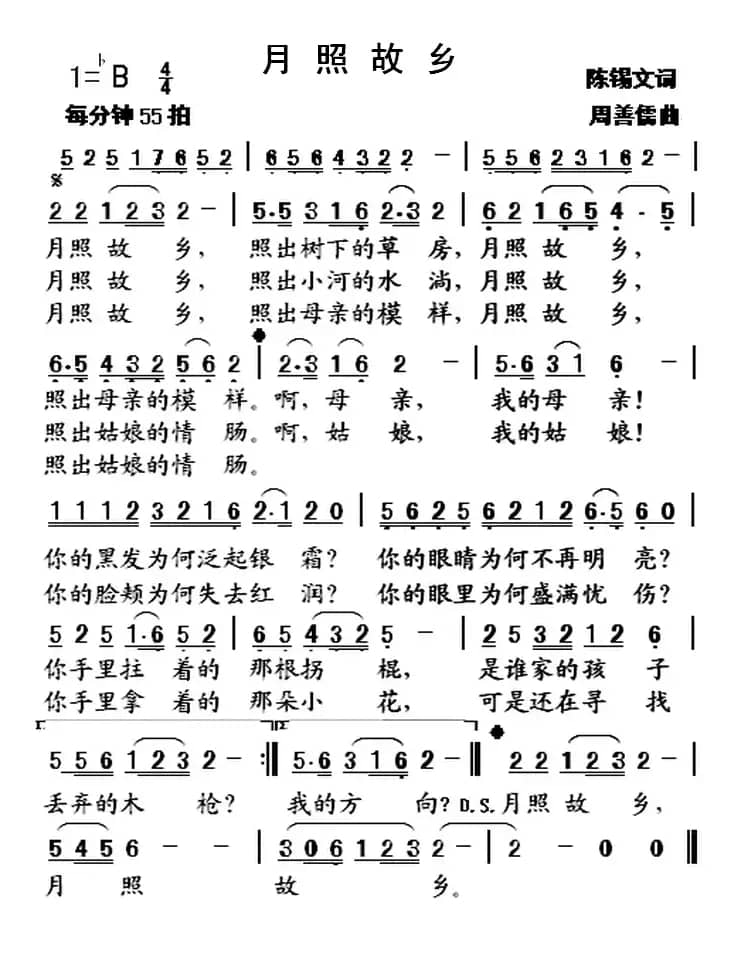 月照故乡
1=♭B 4/4 陈锡文词
每分钟55拍 周善儒曲
5 2 5 1 7 6 5 2 | 6 5 6 4 3 2 2 － | 5 5 6 2 3 1 6 2 － |
2 2 1 2 3 2 － | 5·5 3 1 6 2·3 2 | 6 2 1 6 5 4 - 5 |
月照 故 乡， 照出树下的草 房，月照 故 乡，
月照 故 乡， 照出小河的水 淌，月照 故 乡，
月照 故 乡， 照出母亲的模 样，月照 故 乡，
6·5 4 3 2 5 6 2 | 2·3 1 6 2 － | 5·6 3 1 6 － |
照出母亲的模 样。啊，母 亲， 我的母 亲！
照出姑娘的情 肠。啊，姑 娘， 我的姑 娘！
照出姑娘的情 肠。
1 1 1 2 3 2 1 6 2·1 2 0 | 5 6 2 5 6 2 1 2 6·5 6 0 |
你的黑发为何泛起银 霜？ 你的眼睛为何不再明 亮？
你的脸颊为何失去红 润？ 你的眼里为何盛满忧 伤？
5 2 5 1·6 5 2 | 6 5 4 3 2 5 － | 2 5 3 2 1 2 6 |
你手里拄 着的 那根拐 棍， 是谁家的孩 子
你手里拿 着的 那朵小 花， 可是还在寻 找
1. 2.
5 5 6 1 2 3 2 － :‖ 5·6 3 1 6 2 － ‖ 2 2 1 2 3 2 － |
丢弃的木 枪？ 我的方 向？D.S.月照 故 乡，
5 4 5 6 － － | 3 0 6 1 2 3 2 － | 2 － 0 0 ‖
月 照 故 乡。